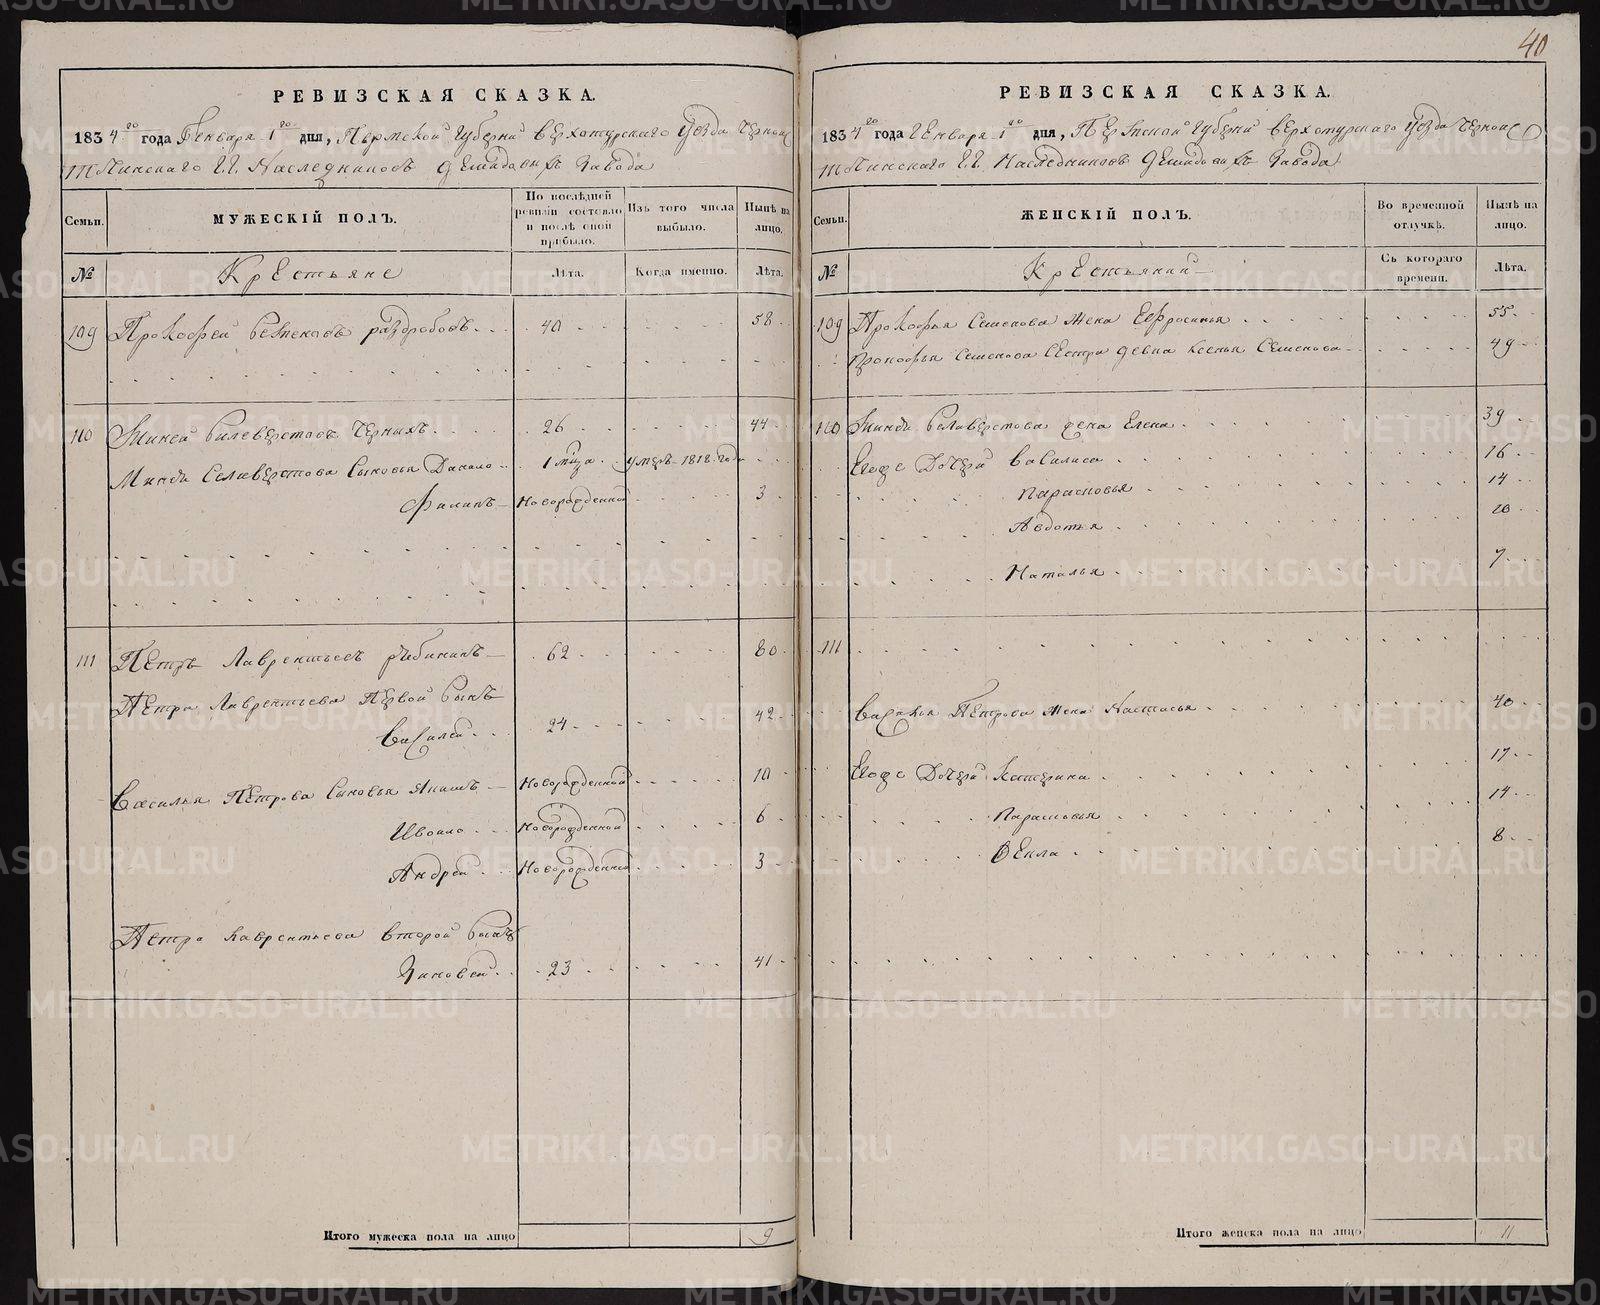 40
РЕВИЗСКАЯ СКАЗКА.
1834го года Генваря 1го дня, Пермской Губернии Верхотурского Уезда Черноис
тлинского Г.Г. Наследниковъ Демидовыхъ Завода
Семьи.
МУЖЕСКІЙ ПОЛЪ.
По послѣдней ревизіи состояло и послѣ оной прибыло.
Изъ того числа выбыло.
Нынѣ на лицо.
№
Крестьяне
Лѣта.
Когда именно.
Лѣта.
109 Прокофей Семеновъ 40 58
110 Силеверстовъ Черныхъ 26 44
Селиверстова Сыновья Данило 1 умеръ 1818 года
Филипъ Новорожденной 3
111 Петръ Лаврентьевъ Рябининъ 62 80
Петра Лаврентьева Первой Сынъ
Василей 24 42
Василья Петрова Сыновья Новорожденной 10
Новорожденной 6
Андрей Новорожденной 3
Петра Лаврентьева второй Сынъ
Зиновей 23 41
Итого мужеска пола на лицо 9
РЕВИЗСКАЯ СКАЗКА.
1834го года Генваря 1го дня, Пермской Губернии Верхотурского Уезда Черноис
тлинского Г.Г. Наследниковъ Демидовыхъ Завода
Семьи.
ЖЕНСКІЙ ПОЛЪ.
Во временной отлучкѣ.
Нынѣ на лицо.
№
Крестьянки
Съ котораго времени.
Лѣта.
109 Прокофья Семенова жена Ефросинья 55
Прокофья Семенова Сестра девка Ксенья Семенова 49
110 Селиверстова жена Елена 39
Егоже Дочери Василиса 16
Парасковья 14
Авдотья 20
Наталья 7
111
Василья Петрова жена Настасья 40
Егоже Дочери Катерина 17
Парасковья 14
Векла 8
Итого женска пола на лицо 11
METRIKI.GASO-URAL.RU